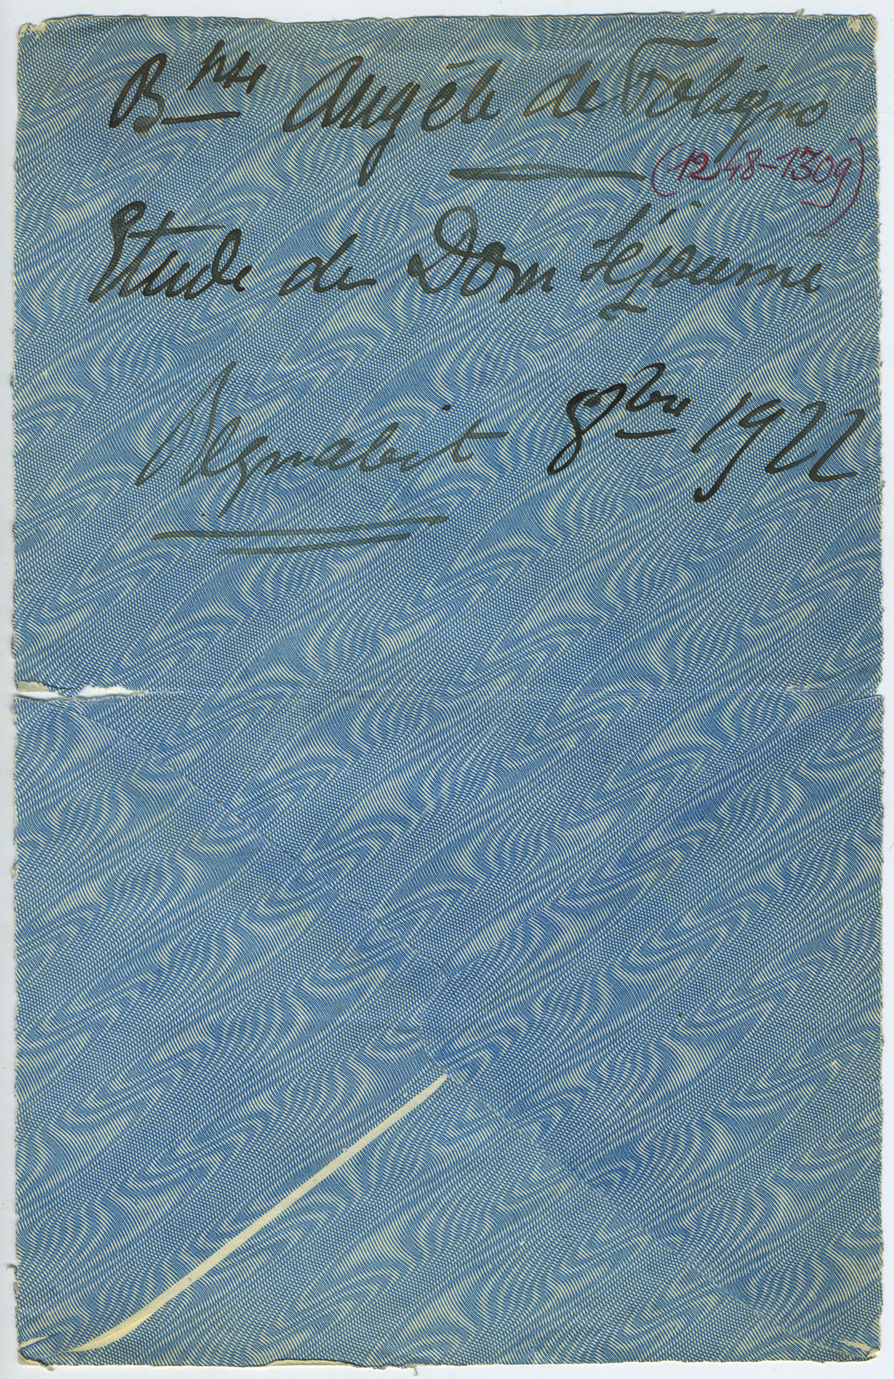 Bse Angèle de Foligno
(1248-1309)
Etude de Dom Séjourné
Regnabit 8bre 1922